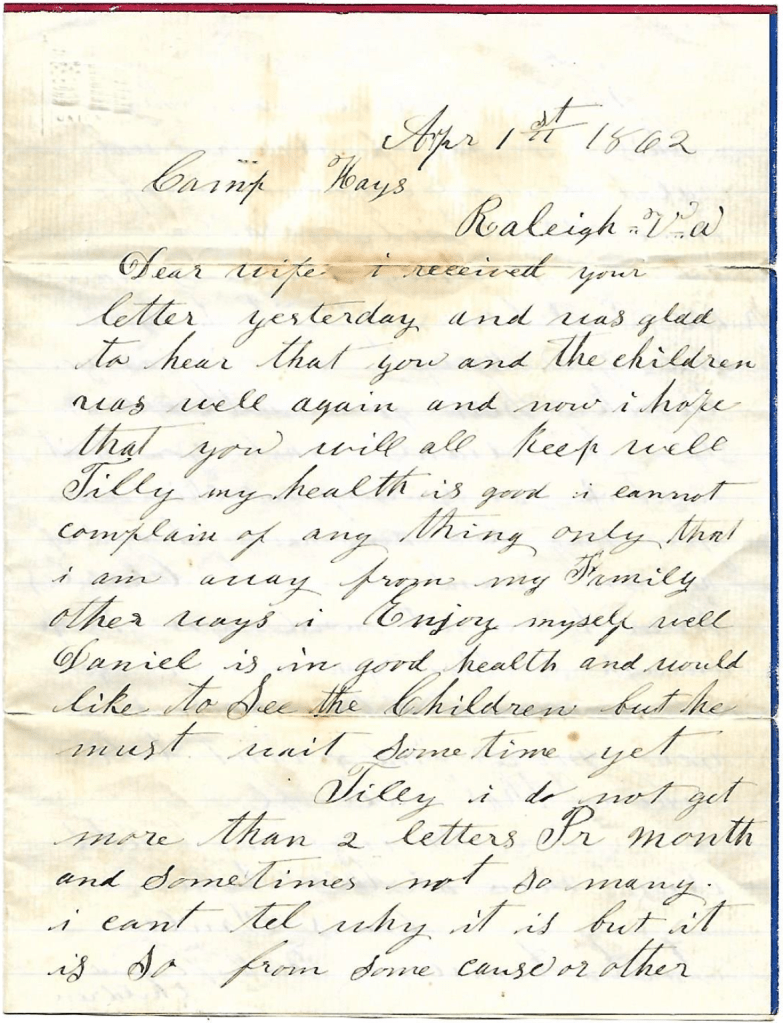 Apr 1st 1862
Camp Hays
Raleigh Va
Dear wife i received your
letter yesterday and was glad
to hear that you and the children
was well again and now i hope
that you will all Keep well
Tilly my health is good i cannot
complain of any thing only that
i am away from my Family
other ways i Enjoy myself well
Daniel is in good health and would
like to See the Children but he
must wait sometime yet
Tilly i do not get
more than 2 letters Pr month
and sometimes not so many.
i cant tel why it is but it
is So from some cause or other